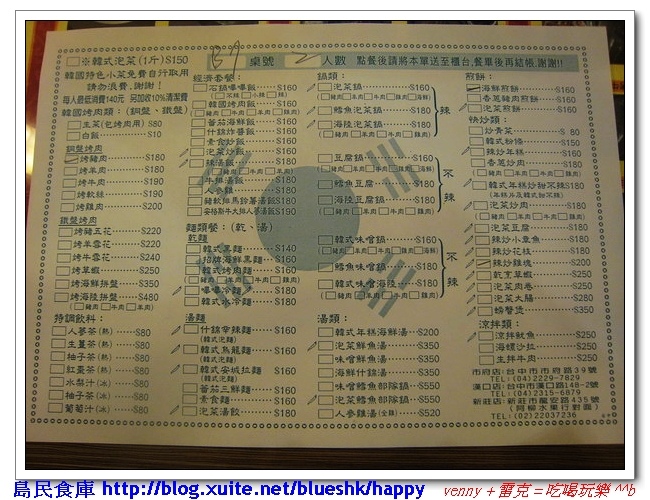 ※韓式泡菜(1斤)$150
B9 桌號 2 人數 點餐後請將本單送至櫃台,餐畢後再結帳,謝謝!!
韓國特色小菜免費自行取用
請勿浪費.謝謝!
每人最低消費140元 另加收10%清潔費
韓國烤肉類:(銅盤、鐵盤)
生菜(包烤肉用) $80
白飯 $10
銅盤烤肉
烤豬肉 $180
烤羊肉 $180
烤牛肉 $190
烤軟絲 $190
烤雞肉 $200
鐵盤烤肉
烤豬五花 $220
烤羊雪花 $220
烤牛雪花 $240
烤草蝦 $250
烤海鮮拼盤 $350
烤海陸拼盤 $480
(豬肉 牛肉 羊肉)
特調飲料:
人參茶(熱) $80
生薑茶(熱) $80
柚子茶(熱) $80
紅棗茶(熱) $80
水梨汁(冰) $80
柚子茶(冰) $80
葡萄汁(冰) $80
經濟套餐:
石鍋嗶嗶飯 $160
韓國烤肉飯 $160
(豬肉 羊肉 牛肉 雞肉)
蕃茄海鮮飯 $160
什錦炒蕃飯 $160
素食炒飯 $160
泡菜炒飯 $160
辣湯飯 $180
(豬肉 羊肉 牛肉 雞肉)
牛排湯飯 $180
人參雞 $180
豬軟排馬鈴薯湯飯 $180
安格斯牛大排人蔘湯飯 $190
麵類餐:(乾、湯)
乾麵
韓式黑麵 $140
招牌海鮮黑麵 $160
韓式烤肉麵 $160
(豬肉 羊肉 牛肉 雞肉)
嗶嗶冷麵 $180
韓式水冷麵 $180
湯麵
什錦拿辣麵 $160
(韓式泡麵)
韓式烏龍麵 $160
(韓式泡麵)
韓式安城拉麵 $160
(韓式泡麵)
蕃茄三鮮麵 $160
素食麵 $160
泡菜湯餃 $180
鍋類:
泡菜鍋 $160
(豬肉 羊肉 牛肉 雞肉 海鮮)
鱈魚泡菜鍋 $180
海陸泡菜鍋 $180
(豬肉 羊肉 牛肉 雞肉)
辣
豆腐鍋 $160
(豬肉 羊肉 牛肉 雞肉 海鮮)
鱈魚豆腐鍋 $180
海陸豆腐鍋 $180
(豬肉 羊肉 牛肉 雞肉)
不辣
韓式味噌鍋 $160
(豬肉 羊肉 牛肉 雞肉 海鮮)
鱈魚味噌鍋 $180
韓式味噌海陸 $180
(豬肉 羊肉 牛肉 雞肉)
不辣
湯類:
韓式年糕海鮮湯 $200
泡菜鮮魚湯 $350
味噌鮮魚湯 $350
海鮮什錦湯 $350
味噌魚部隊鍋 $550
泡菜魚部隊鍋 $550
人參雞湯(全雞) $520
煎餅:
海鮮煎餅 $160
香蔥豬肉煎餅 $160
泡菜煎餅 $160
快炒類:
炒青菜 $ 80
韓式粉條 $150
辣炒年糕 $160
香蔥炒肉 $160
(豬肉 羊肉 牛肉 雞肉)
韓式年糕炒甜不辣 $180
泡菜炒肉 $180
(豬肉 羊肉 牛肉 雞肉)
泡菜豆腐 $180
辣炒小章魚 $180
辣炒花枝 $180
辣炒雞塊 $250
乾烹草蝦 $250
泡菜肉卷 $250
泡菜大腸 $280
螃蟹煲 $350
涼拌類:
涼拌魷魚 $250
海螺沙拉 $250
生拌牛肉 $250
市府店:台中市市府路39號
TEL:(04)2229-7829
漢口店:台中市漢口路148-2號
TEL:(04)2315-6879
新莊店:新莊市龍安路435號
(阿柳水果行對面)
TEL:(02)22037236
島民食庫 http://blog.xuite.net/blueshk/happy venny+雷克=吃喝玩樂 ^^b